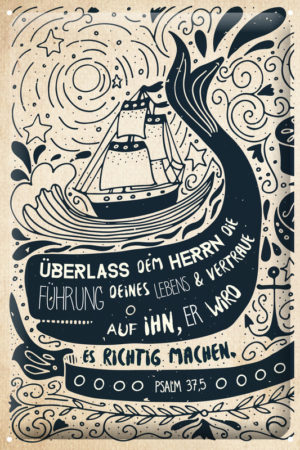 ÜBERLASS DEM HERRN DIE
FÜHRUNG DEINES LEBENS & VERTRAUE
AUF IHN, ER WIRD
ES RICHTIG MACHEN.
PSALM 37,5